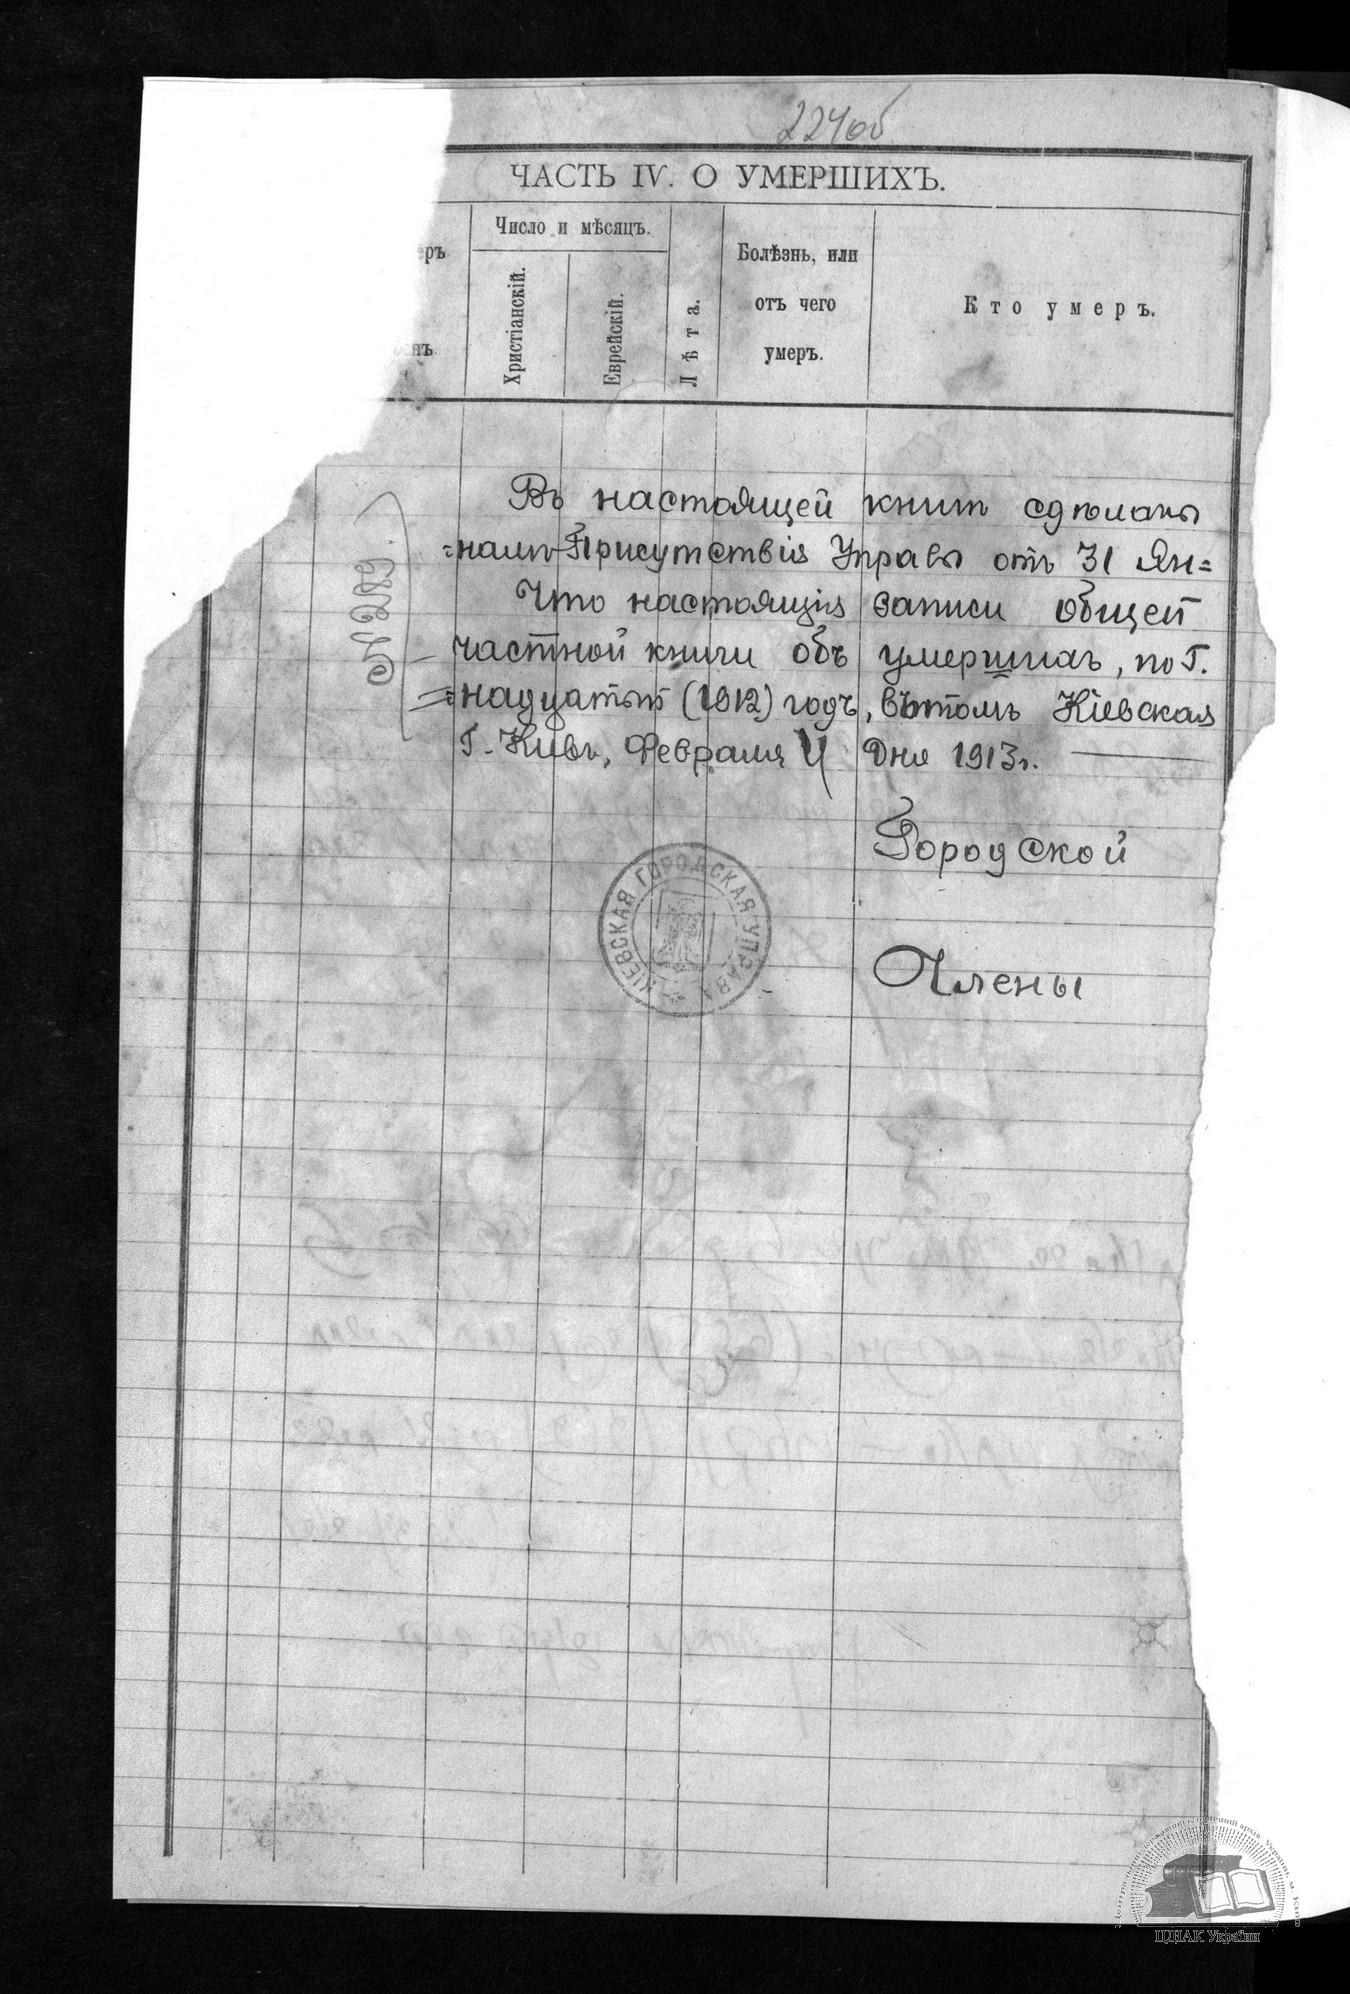 224об
ЧАСТЬ IV. О УМЕРШИХЪ.
еръ
Число и мѣсяцъ.
Христіанскій.
Еврейскій.
Лѣта.
Болѣзнь, или
отъ чего
умеръ.
Кто умеръ.
№ 289.
Въ настоящей книгѣ сдѣланы
=налѣ Присутствія Управы отъ 31 Ян=
Что настоящія записи общей
частной книги объ умершихъ, по Г.
=надцатый (1912) годъ, въ томъ Кіевская
Г. Кіевъ, Февраля 4 дня 1913 г.
Городской
Члены
КІЕВСКАЯ ГОРОДСКАЯ УПРАВА
ЦДІАК України